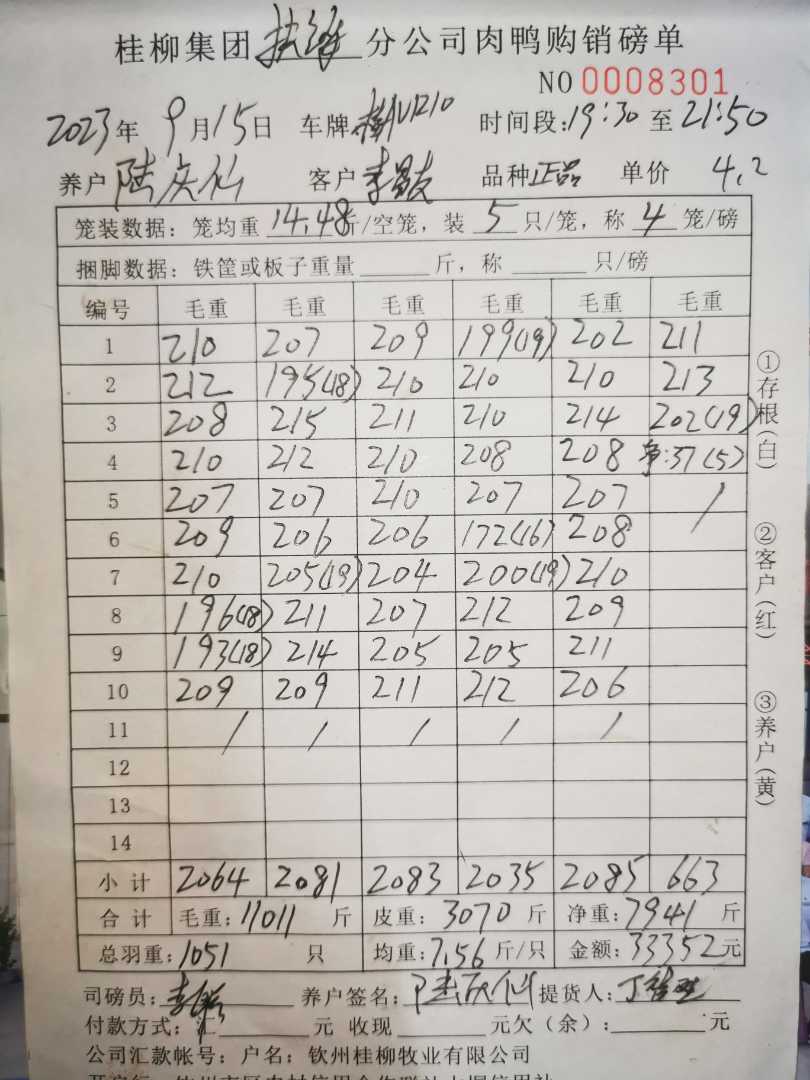 桂柳集团 扶绥 分公司肉鸭购销磅单
NO 0008301
2023年 9月15日 车牌 1210 时间段:19:30 至 21:50
养户 陆庆仙 客户 李 友 品种 正品 单价 4.2
笼装数据: 笼均重 14.48 斤/空笼, 装 5 只/笼, 称 4 笼/磅
捆脚数据: 铁筐或板子重量 斤, 称 只/磅
编号 毛重 毛重 毛重 毛重 毛重 毛重
1 210 207 209 199(19) 202 211
2 212 195(18) 210 210 210 213
3 208 215 211 210 214 202(19)
4 210 212 210 208 208 净:37(5)
5 207 207 210 207 207 /
6 209 206 206 172(16) 208
7 210 205(19) 204 200(19) 210
8 196(18) 211 207 212 209
9 193(18) 214 205 205 211
10 209 209 211 212 206
11 / / / / /
12
13
14
小计 2064 2081 2083 2035 2085 663
合计 毛重:11011 斤 皮重:3070 斤 净重:7941 斤
总羽重:1051 只 均重:7.56 斤/只 金额:33352元
司磅员: 李 养户签名: 陆庆仙 提货人: 丁
付款方式:汇 元 收现 元欠(余): 元
公司汇款帐号: 户名: 钦州桂柳牧业有限公司
①存根(白)
②客户(红)
③养户(黄)